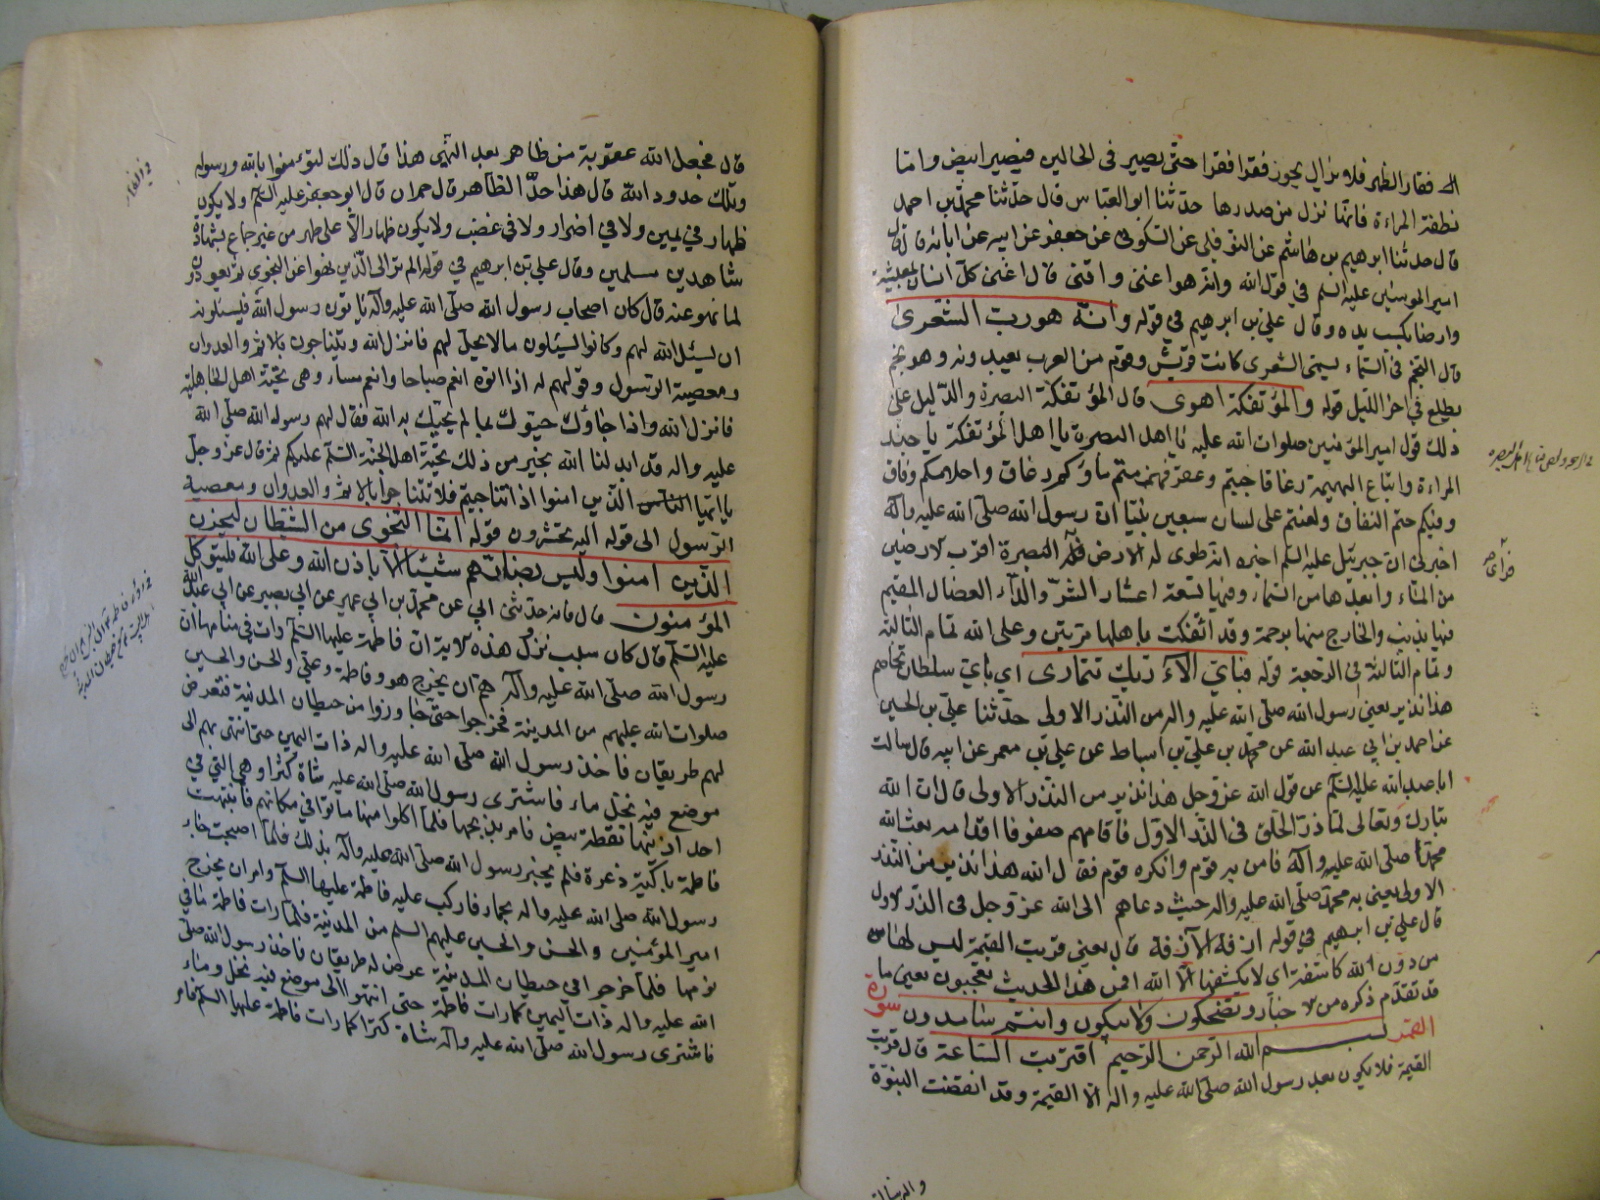 الى فقار الظهر فلا يزال يجوز فقرا فقرا حتى يصير فى الحالبين فيصير ابيض و اما
نطفة المراءة فانها تنزل من صدرها حدثنا ابو العباس قال حدثنا محمد بن احمد
قال حدثنا ابرهيم بن هاشم عن النوفلى عن السكونى عن جعفر عن ابيه عن ابائه قال قال
امير المومنين عليه السلم فى قول الله وانه هو اغنى واقنى قال اغنى كل انسان بمعيشته
وارضاه بكسب يده وقال على بن ابرهيم فى قوله وانه هو رب الشعرى
قال النجم فى السماء يسمى الشعرى كانت قريش وقوم من العرب يعبدونه وهو نجم
يطلع فى اخر الليل قوله والمؤتفكة اهوى قال المؤتفكة البصرة والدليل على
ذلك قول امير المؤمنين صلوات الله عليه يا اهل البصرة يا اهل المؤتفكة يا جند
المراءة واتباع البهيمة رغا فاجبتم وعقر فهربتم ماؤكم زعاق واحلامكم دقاق
وفيكم ختم النفاق ولعنتم على لسان سبعين نبيا ان رسول الله صلى الله عليه وآله
اخبرنى ان جبرئيل عليه السلم اخبره انه طوى له الارض فرآى البصرة اقرب الارضين
من الماء وابعدها من السماء وفيها تسعة اعشار الشر والداء العضال المقيم
فيها بذنب والخارج منها برحمة وقد ائتفكت باهلها مرتين وعلى الله تمام الثالثة
وتمام الثالثة فى الرجعة قوله فباى آلاء ربك تتمارى اى باى سلطان تخاصم
هذا نذير يعنى رسول الله صلى الله عليه واله من النذر الاولى حدثنا على بن الحسين
عن احمد بن ابى عبد الله عن محمد بن على بن اسباط عن على بن معمر عن ابيه قال سالت
ابا عبد الله عليه السلم عن قول الله عز وجل هذا نذير من النذر الاولى قال ان الله
تبارك وتعالى لما ذرء الخلق فى الذر الاول فاقامهم صفوفا قدامه بعث الله
محمدا صلى الله عليه وآله فامن به قوم وانكره قوم فقال الله هذا نذير من النذر
الاولى يعنى به محمد صلى الله عليه واله حيث دعاهم الى الله عز وجل فى الذر الاول
قال على بن ابرهيم فى قوله ازفة الآزفة قال يعنى قربت القيمة ليس لها من
من دون الله كاشفة اى لا يكشفها الا الله افمن هذا الحديث تعجبون يعنى ما
قد تقدم ذكره من الاخبار وتضحكون ولا تبكون وانتم سامدون سورة
القمر بسم الله الرحمن الرحيم اقتربت الساعة قال قربت
القيمة فلا يكون بعد رسول الله صلى الله عليه واله الا القيمة وقد انقضت النبوة
والرسالة
قال فجعل الله عقوبة من ظاهر بعد النهى هذا قال ذلك لتؤمنوا بالله ورسوله
وتلك حدود الله قال هذا حد الظاهر قال حمران قال ابو جعفر عليه السلم ولا يكون
ظهار فى يمين ولا فى اضرار ولا فى غضب ولا يكون ظهار الا على طهر من غير جماع بشهادة
شاهدين مسلمين وقال على بن ابرهيم فى قوله الم تر الى الذين نهوا عن النجوى ثم يعودون
لما نهوا عنه قال كان اصحاب رسول الله صلى الله عليه وآله ياتون رسول الله فيسئلونه
ان يسئل الله لهم وكانوا يسئلون ما لا يحل لهم فانزل الله ويتناجون بالاثم والعدوان
ومعصية الرسول وقولهم له اذا اتوه انعم صباحا وانعم مساء وهى تحية اهل الجاهلية
فانزل الله واذا جاؤك حيوك بما لم يحيك به الله فقال لهم رسول الله صلى الله
عليه واله قد ابدلنا الله بخير من ذلك تحية اهل الجنة السلم عليكم ثم قال عز وجل
يا ايها الناس الذين امنوا اذا تناجيتم فلا تتناجوا بالاثم والعدوان ومعصية
الرسول الى قوله اليه تحشرون قوله انما النجوى من الشيطان ليحزن
الذين امنوا وليس بضارهم شيئا الا باذن الله وعلى الله فليتوكل
المؤمنون قال فانه حدثنى ابى عن محمد بن ابى عمير عن ابى بصير عن ابى عبد الله
عليه السلم قال كان سبب نزول هذه الاية ان فاطمة عليها السلم رات فى منامها ان
رسول الله صلى الله عليه وآله هم ان يخرج هو وفاطمة وعلى والحسن والحسين
صلوات الله عليهم من المدينة فخرجوا حتى جاوزوا من حيطان المدينة فتعرض
لهم طريقان فاخذ رسول الله صلى الله عليه واله ذات اليمين حتى انتهى بهم الى
موضع فيه نخل وماء فاشترى رسول الله صلى الله عليه شاة كثراء وهى التى فى
احد اذنيها نقطة بيض فامر بذبحها فلما اكلوا منها ماتوا فى مكانهم فانتبهت
فاطمة باكية ذعرة فلم تخبر رسول الله صلى الله عليه وآله بذلك فلما اصبحت جاء
رسول الله صلى الله عليه واله بحمار فاركب عليه فاطمة عليها السلم وامر ان يخرج
امير المؤمنين والحسن والحسين عليهم السلم من المدينة فلما رات فاطمة فى
نومها فلما خرجوا من حيطان المدينة عرض له طريقان فاخذ رسول الله صلى
الله عليه واله ذات اليمين كما رات فاطمة حتى انتهوا الى موضع فيه نخل وماء
فاشترى رسول الله صلى الله عليه وآله شاة كثراء كما رات فاطمة عليها السلم فامر